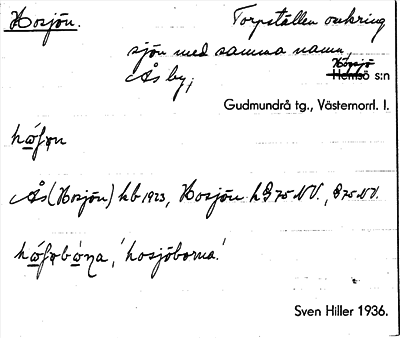 Hosjön. Torpställen omkring
sjön med samma namn,
Ås by, Högsjö
Hemsö s:n
Gudmundrå tg., Västernorrl. l.
Ås (Hosjön) hb 1923, Hosjön h 75 NV., 75 NV.
'hosjöborna.'
Sven Hiller 1936.